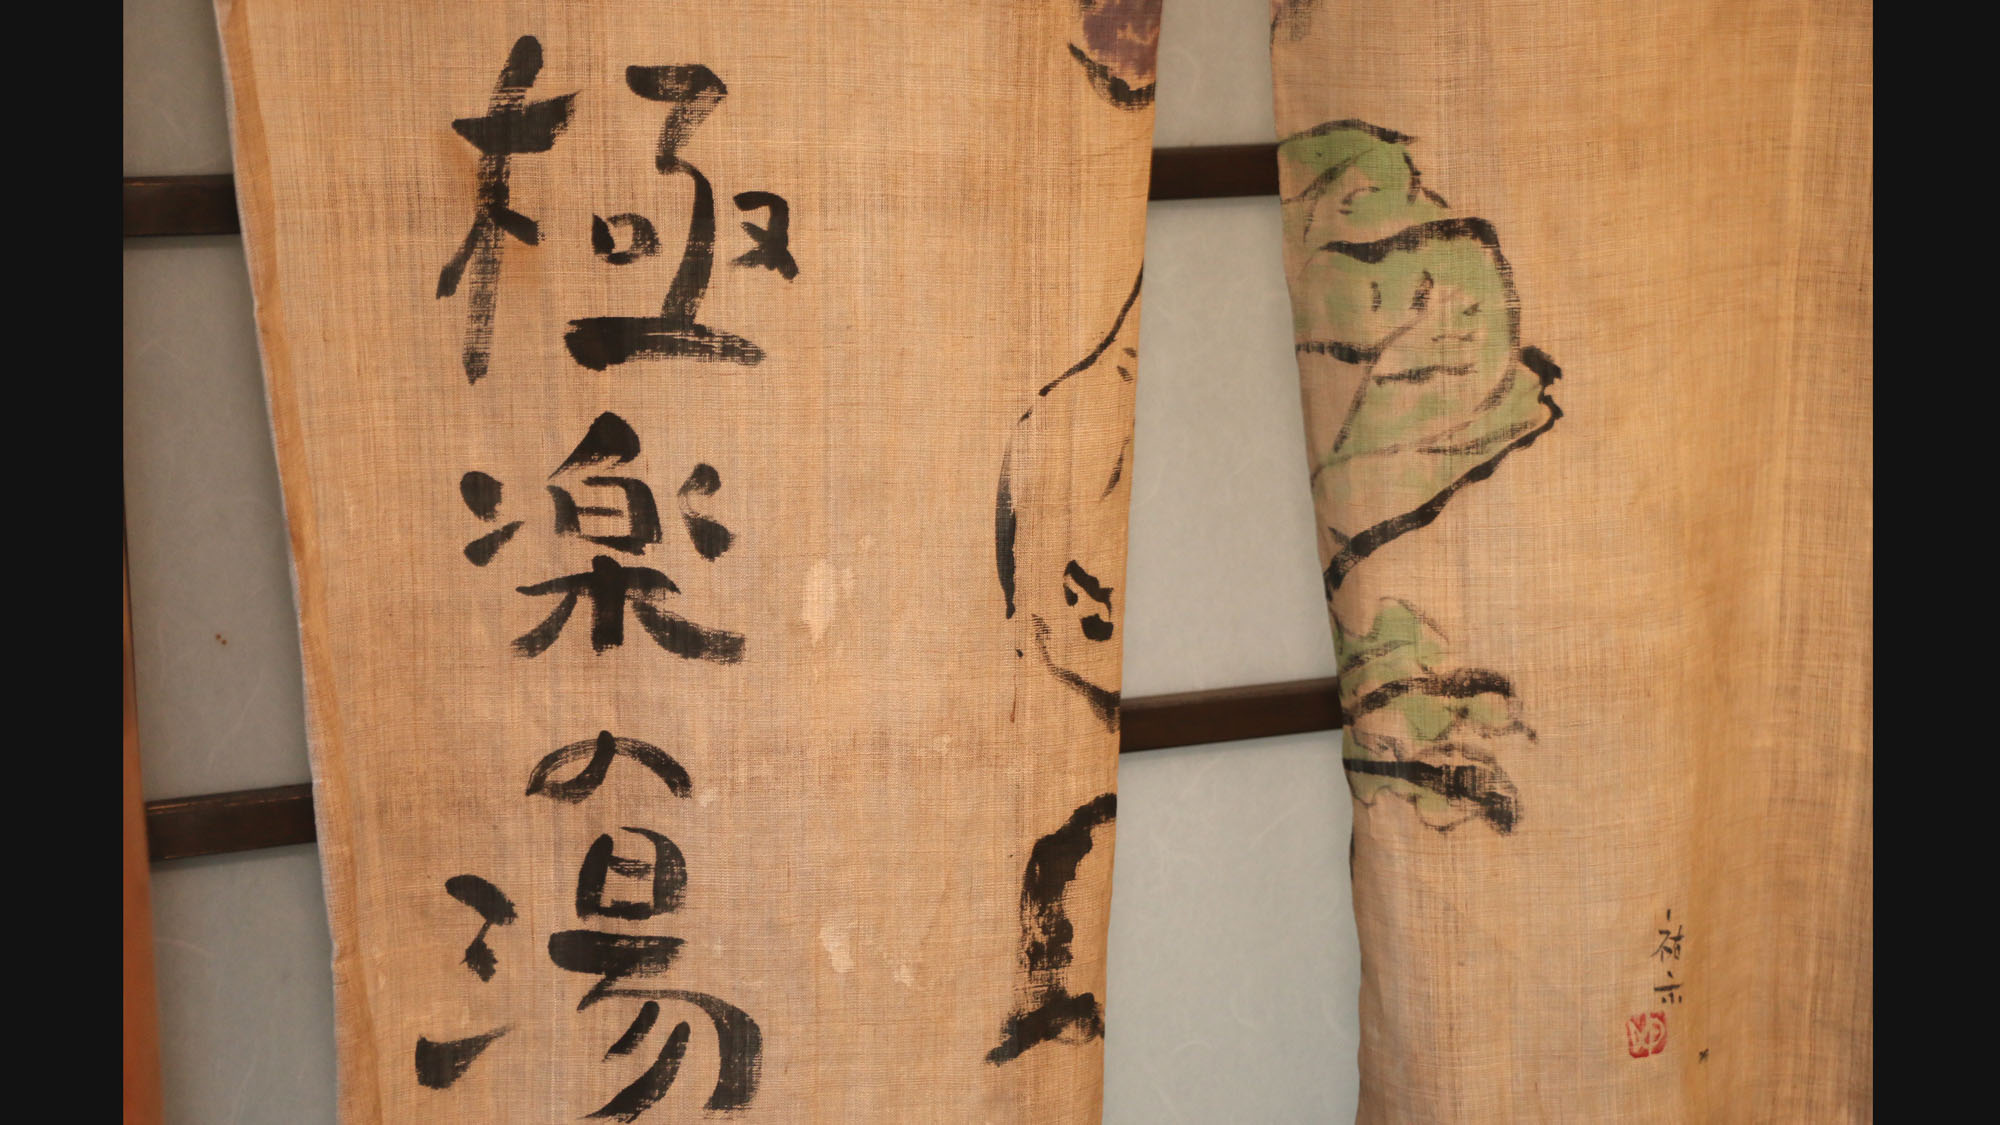 極楽の湯